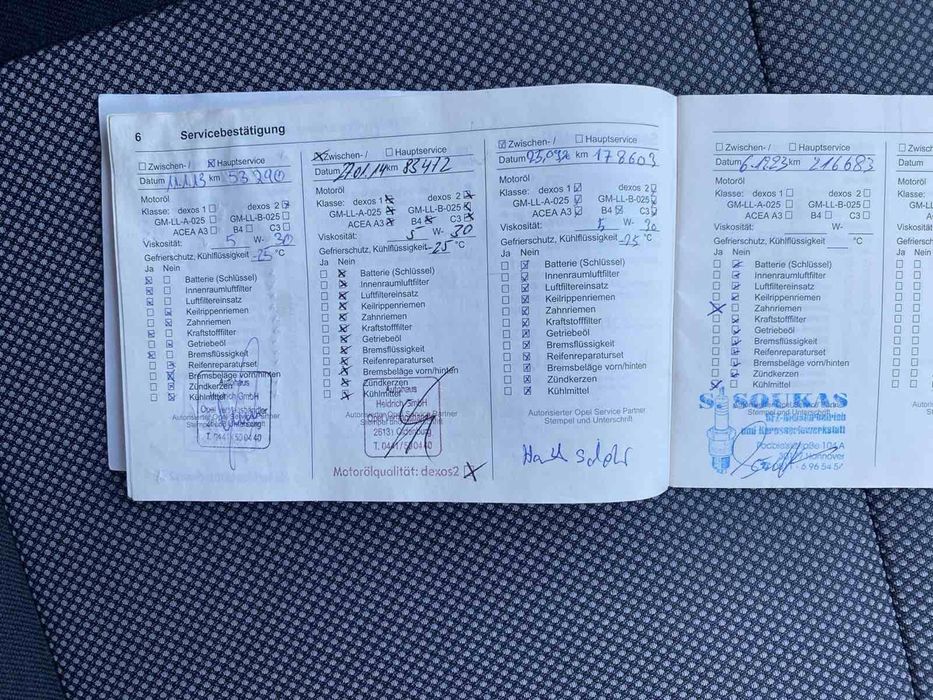 6 Servicebestätigung
Zwischen- / Hauptservice
Datum 11.1.13 km 53290
Motoröl
Klasse: dexos 1 dexos 2
GM-LL-A-025 GM-LL-B-025
ACEA A3 B4 C3
Viskosität: 5 W- 30
Gefrierschutz, Kühlflüssigkeit -25 °C
Ja Nein
Batterie (Schlüssel)
Innenraumluftfilter
Luftfiltereinsatz
Keilrippenriemen
Zahnriemen
Kraftstofffilter
Getriebeöl
Bremsflüssigkeit
Reifenreparaturset
Bremsbeläge vorn/hinten
Zündkerzen
Kühlmittel
Autohaus
Heidrich GmbH
T. 0441/50 04 40
Zwischen- / Hauptservice
Datum km 83412
Motoröl
Klasse: dexos 1 dexos 2
GM-LL-A-025 GM-LL-B-025
ACEA A3 B4 C3
Viskosität: 5 W- 30
Gefrierschutz, Kühlflüssigkeit -25 °C
Ja Nein
Batterie (Schlüssel)
Innenraumluftfilter
Luftfiltereinsatz
Keilrippenriemen
Zahnriemen
Kraftstofffilter
Getriebeöl
Bremsflüssigkeit
Reifenreparaturset
Bremsbeläge vorn/hinten
Zündkerzen
Kühlmittel
Autohaus
Heidrich GmbH
Autorisierter Opel Service Partner
26131 Oldenburg
T. 0441/50 04 40
Motorölqualität: dexos2
Zwischen- / Hauptservice
Datum km 178603
Motoröl
Klasse: dexos 1 dexos 2
GM-LL-A-025 GM-LL-B-025
ACEA A3 B4 C3
Viskosität: 5 W- 30
Gefrierschutz, Kühlflüssigkeit -25 °C
Ja Nein
Batterie (Schlüssel)
Innenraumluftfilter
Luftfiltereinsatz
Keilrippenriemen
Zahnriemen
Kraftstofffilter
Getriebeöl
Bremsflüssigkeit
Reifenreparaturset
Bremsbeläge vorn/hinten
Zündkerzen
Kühlmittel
Autorisierter Opel Service Partner
Stempel und Unterschrift
Zwischen- / Hauptservice
Datum 6.12.23 km 216683
Motoröl
Klasse: dexos 1 dexos 2
GM-LL-A-025 GM-LL-B-025
ACEA A3 B4 C3
Viskosität: W-
Gefrierschutz, Kühlflüssigkeit °C
Ja Nein
Batterie (Schlüssel)
Innenraumluftfilter
Luftfiltereinsatz
Keilrippenriemen
Zahnriemen
Kraftstofffilter
Getriebeöl
Bremsflüssigkeit
Reifenreparaturset
Bremsbeläge vorn/hinten
Zündkerzen
Kühlmittel
SOUKAS
Kfz-Meisterbetrieb
und Karosseriewerkstatt
Podbielskistraße 104 A
Hannover
Zwischen-
Datum
Motoröl
Klasse:
Ja Nein